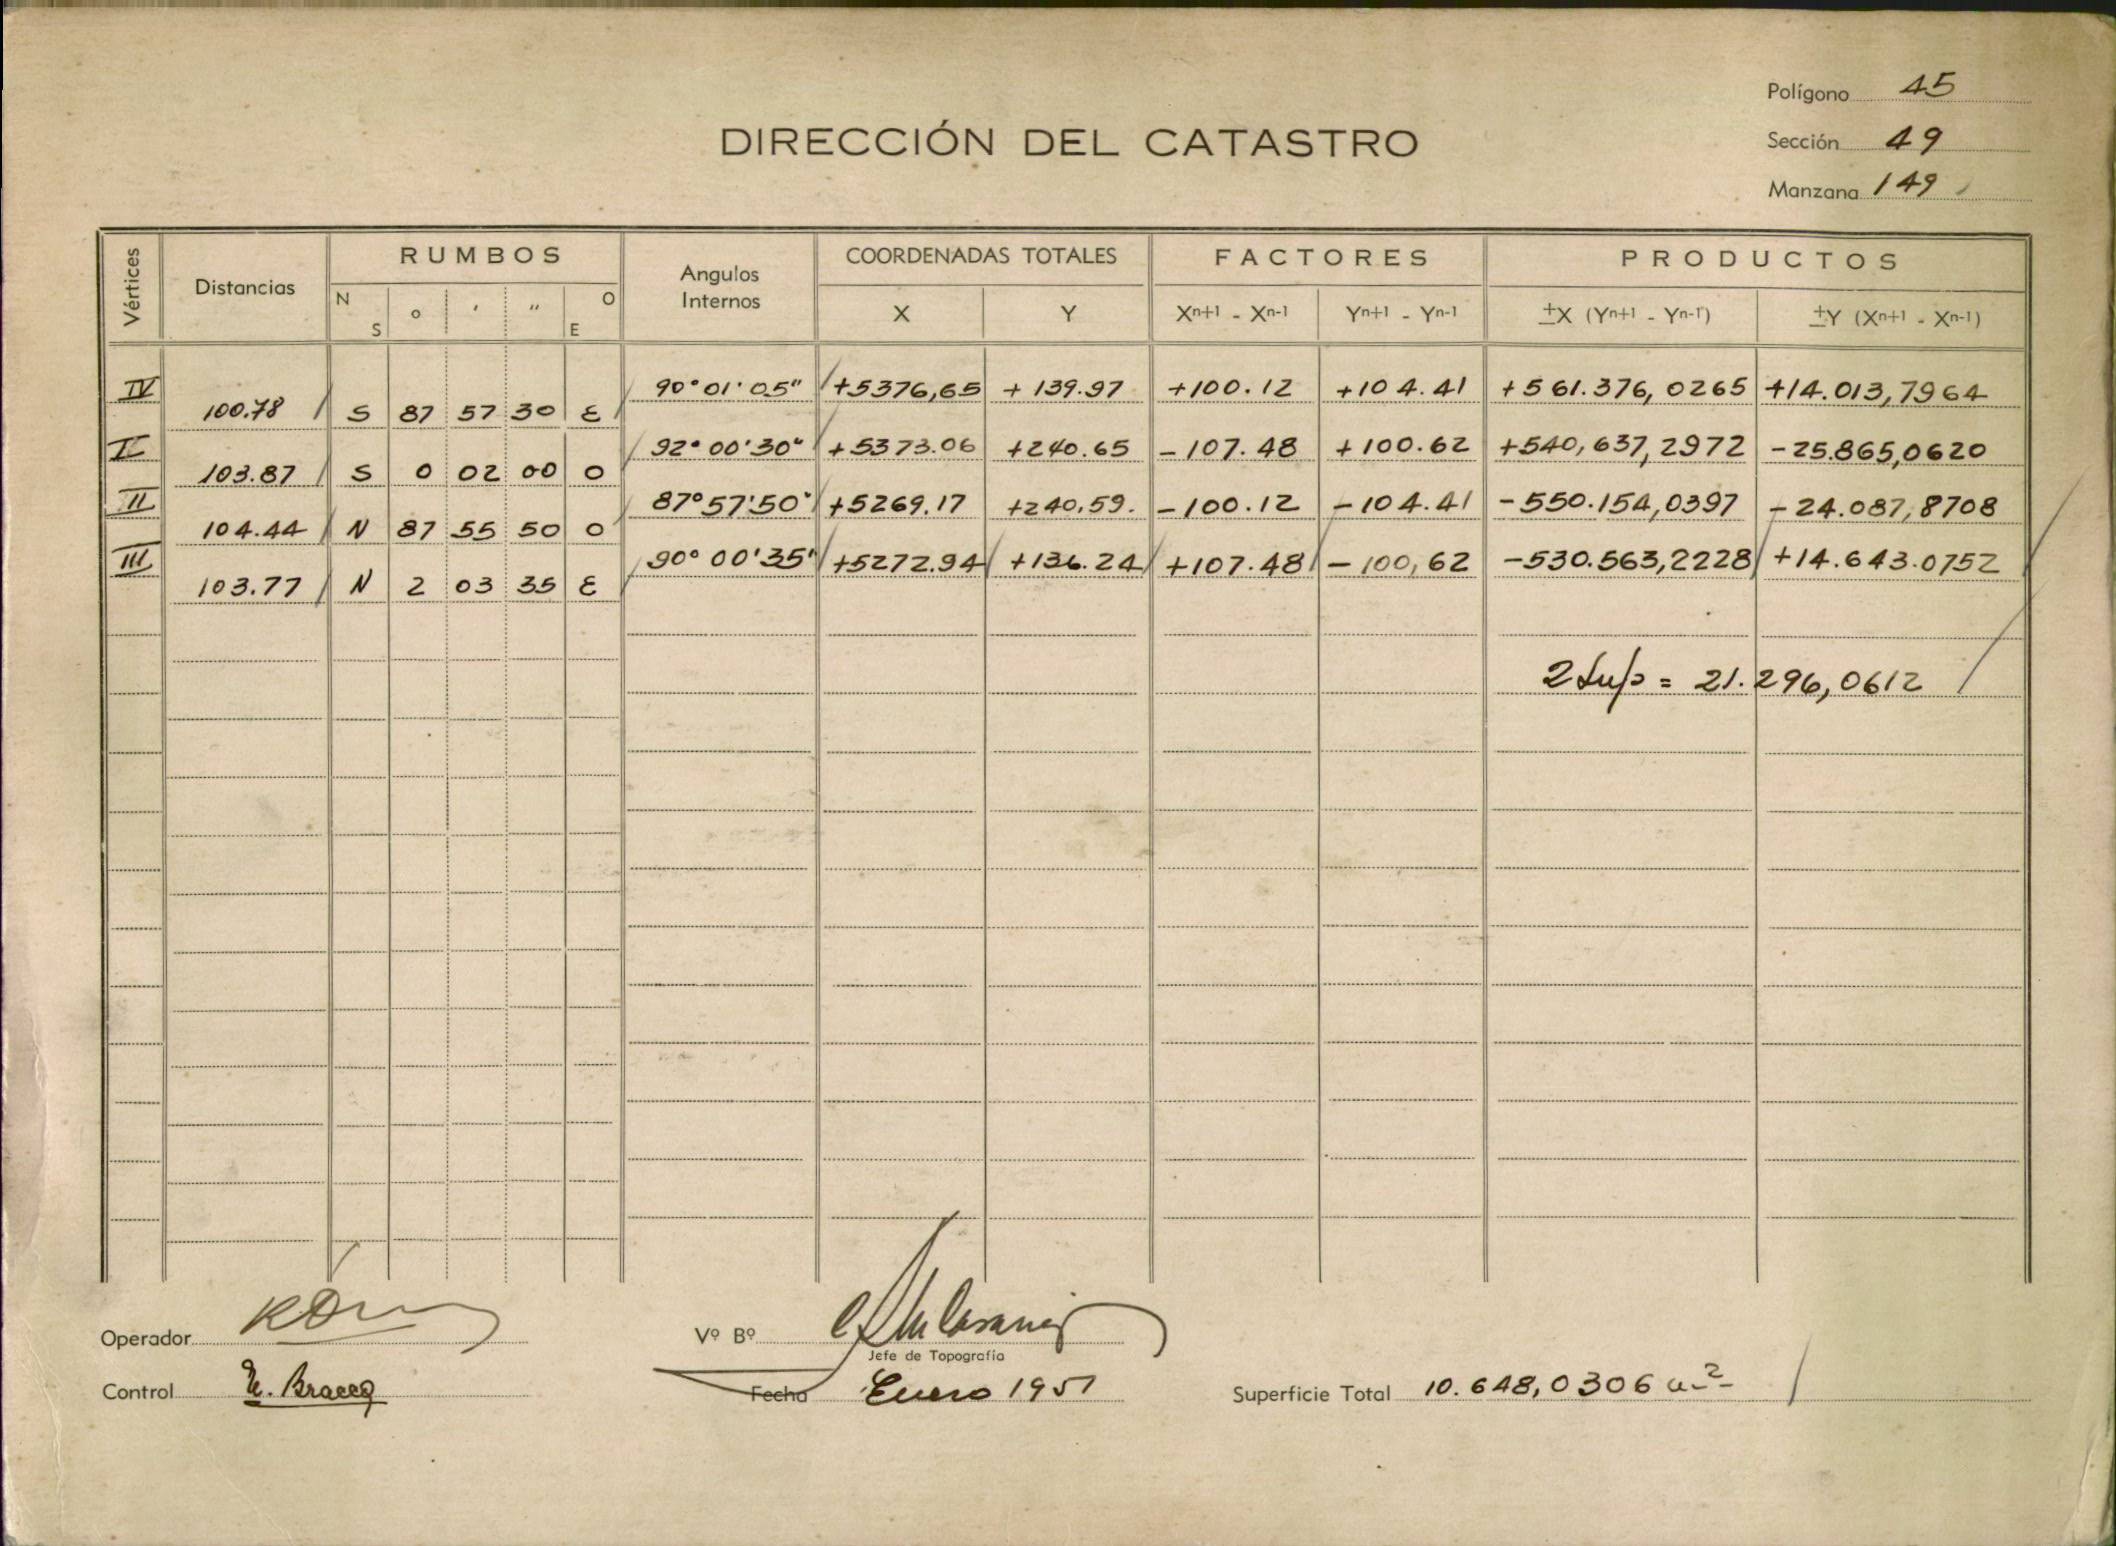 Polígono 45
DIRECCIÓN DEL CATASTRO
Sección 49
Manzana 149
Vértices Distancias RUMBOS Angulos Internos COORDENADAS TOTALES FACTORES PRODUCTOS
N S o ' " O E X Y Xn+1 - Xn-1 Yn+1 - Yn-1 ±X (Yn+1 - Yn-1) ±Y (Xn+1 - Xn-1)
IV 90° 01' 05" +5376,65 + 139.97 +100.12 +104.41 +561.376,0265 +14.013,7964
100.78 S 87 57 30 E
I 92° 00' 30" +5373.06 +240.65 -107.48 +100.62 +540,637,2972 -25.865,0620
103.87 S 0 02 00 O
II 87° 57' 50" +5269.17 +240,59. -100.12 -104.41 -550.154,0397 -24.087,8708
104.44 N 87 55 50 O
III 90° 00' 35" +5272.94 +136.24 +107.48 -100,62 -530.563,2228 +14.643.0752
103.77 N 2 03 35 E
2 Sup = 21.296,0612
Operador
Vº Bº
Jefe de Topografía
Control E. Bracco
Fecha Enero 1951
Superficie Total 10.648,0306 m2